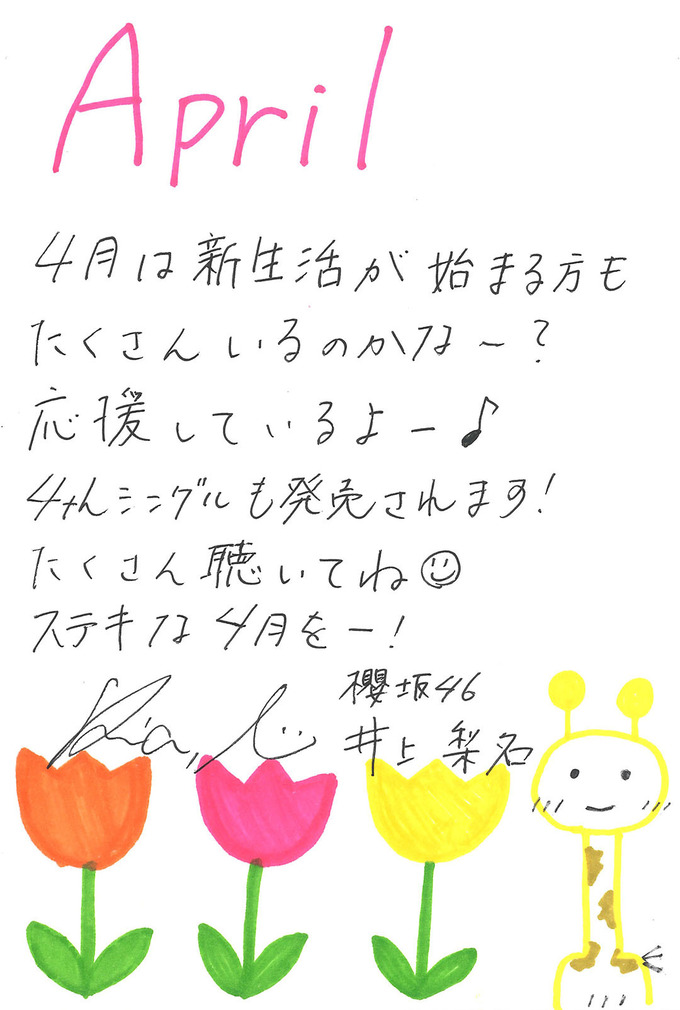 April
4月は新生活が始まる方も
たくさんいるのかな〜?
応援しているよー♪
4thシングルも発売されます!
たくさん聴いてね☺
ステキな4月をー!
櫻坂46
井上梨名